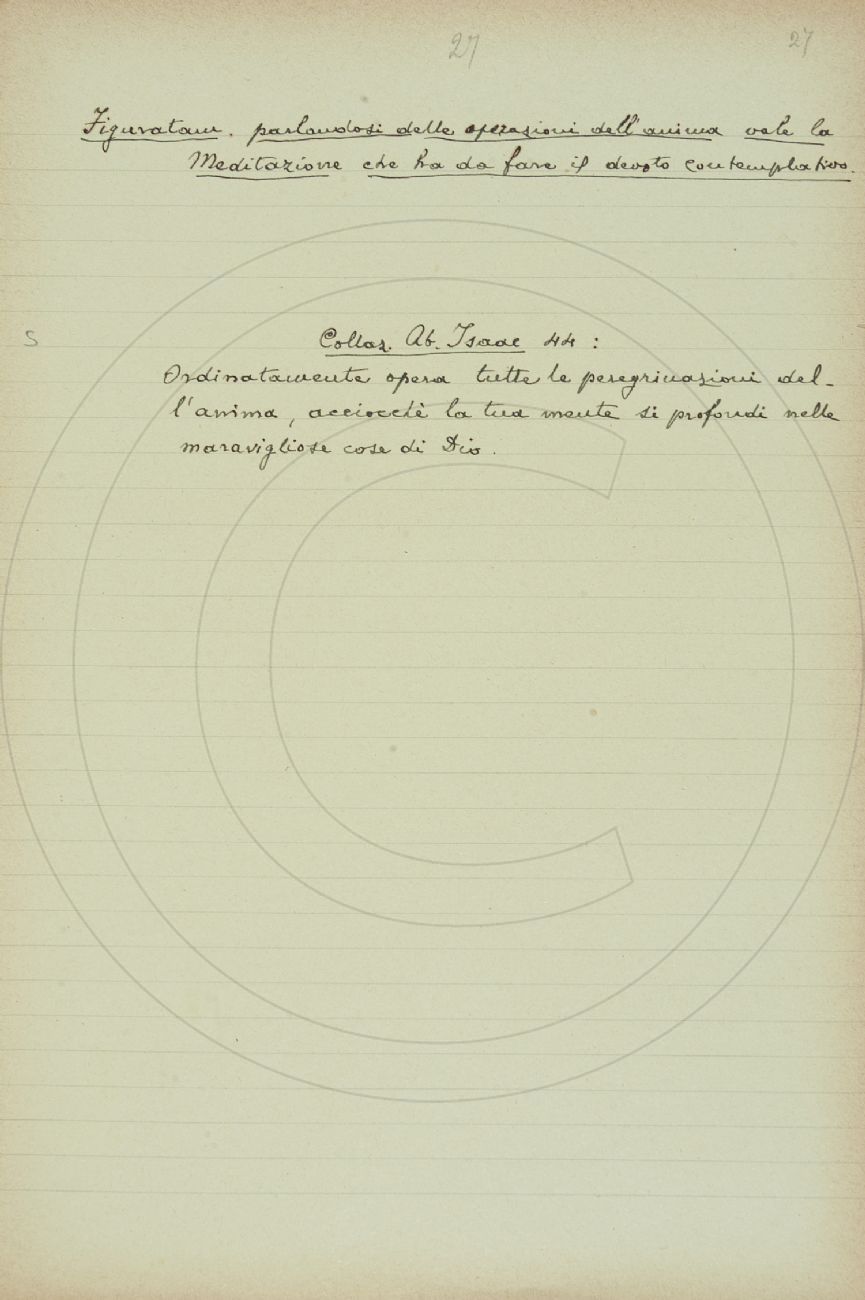 27 27
Figuratam. parlandosi delle operazioni dell'anima vale la
Meditazione che ha da fare il devoto contemplativo.
S Collaz. Ab. Isaac 44 :
Ordinatamente opera tutte le peregrinazioni del-
l'anima, acciocchè la tua mente si profondi nelle
maravigliose cose di Dio.